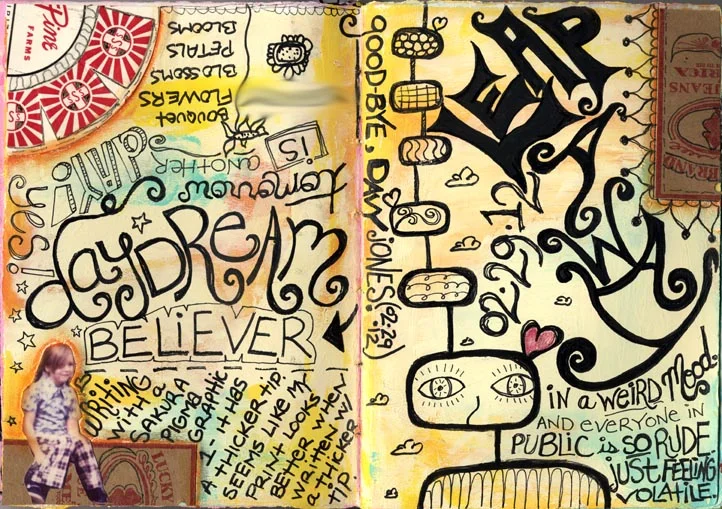 Pine
FARMS
BOUQUET
FLOWERS
BLOSSOMS
PETALS
BLOOMS
tomorrow
IS
ANOTHER
yes!
dayDREAM
BELiEVER
WRiTiNG
WITH a
SAKURA
PIGMA
GRAPHIC
1- IT HAS
A THICKER TIP
SEEMS LIKE MY
PRiNT LOOKS
BETTER WHEN
WRiTTEN W/
a THICKER
TIP.
LUCKY
GOOD-BYE, DAVY JONES.
LEAP
A
WAY
02.29.12
iN a WEiRD Mood.
AND everyone in
PUBLiC is SO RUDE
JUST FEELiNG
VOLATiLE.
JEANS
BRAND